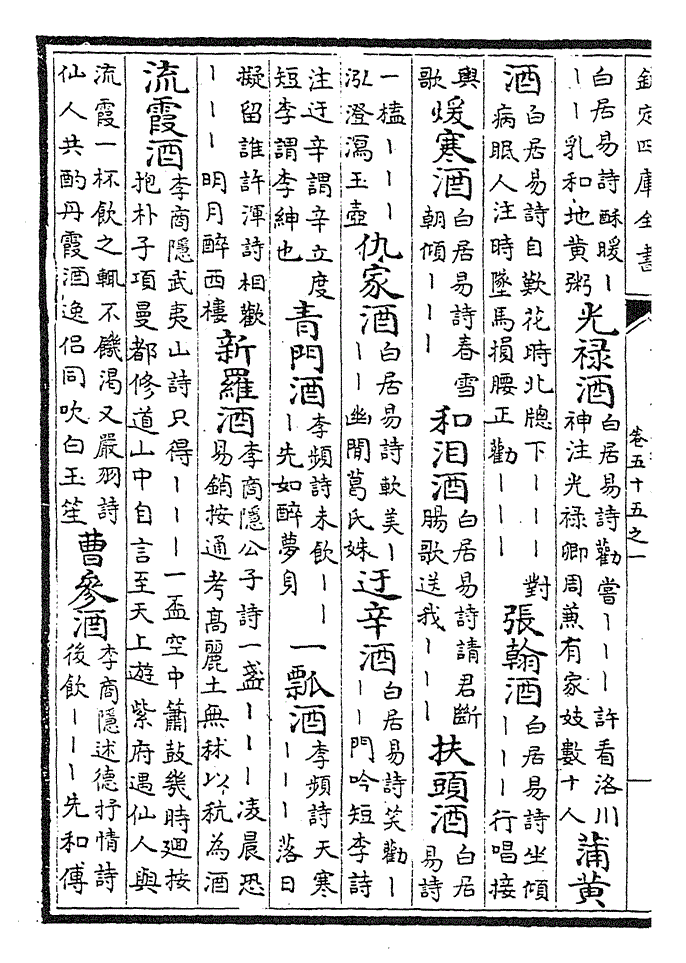 欽定四庫全書 卷五十五之一
白居易詩酥暖丨
丨丨乳和地黃粥
光祿酒
白居易詩勸嘗丨丨丨許看洛川
神注光祿卿周蒹有家妓數十人
蒲黄
酒
白居易詩自歎花時北牕下丨丨丨對
病眠人注時墜馬損腰正勸丨丨丨
張翰酒
白居易詩坐傾
丨丨丨行唱接
輿
歌
煖寒酒
白居易詩春雪
朝傾丨丨丨
和泪酒
白居易詩請君斷
腸歌送我丨丨丨
扶頭酒
白居
易詩
一榼丨丨丨
泓澄瀉玉壺
仇家酒
白居易詩軟美丨
丨丨幽閒葛氏姝
迂辛酒
白居易詩笑勸丨
丨丨門吟短李詩
注迂辛謂辛立度
短李謂李紳也
青門酒
李頻詩未飲丨丨
丨先如醉夢身
一瓢酒
李頻詩天寒
丨丨丨落日
擬留誰許渾詩相歡
丨丨丨明月醉西樓
新羅酒
李商隱公子詩一盞丨丨丨凌晨恐
易銷按通考髙麗土無秫以秔為酒
流霞酒
李商隱武夷山詩只得丨丨丨一盃空中簫鼓幾時廻按
抱朴子項曼都修道山中自言至天上遊紫府遇仙人與
流霞一杯飲之輒不饑渴又嚴羽詩
仙人共酌丹霞酒逸侣同吹白玉笙
曹參酒
李商隱述德抒情詩
後飲丨丨丨先和傅